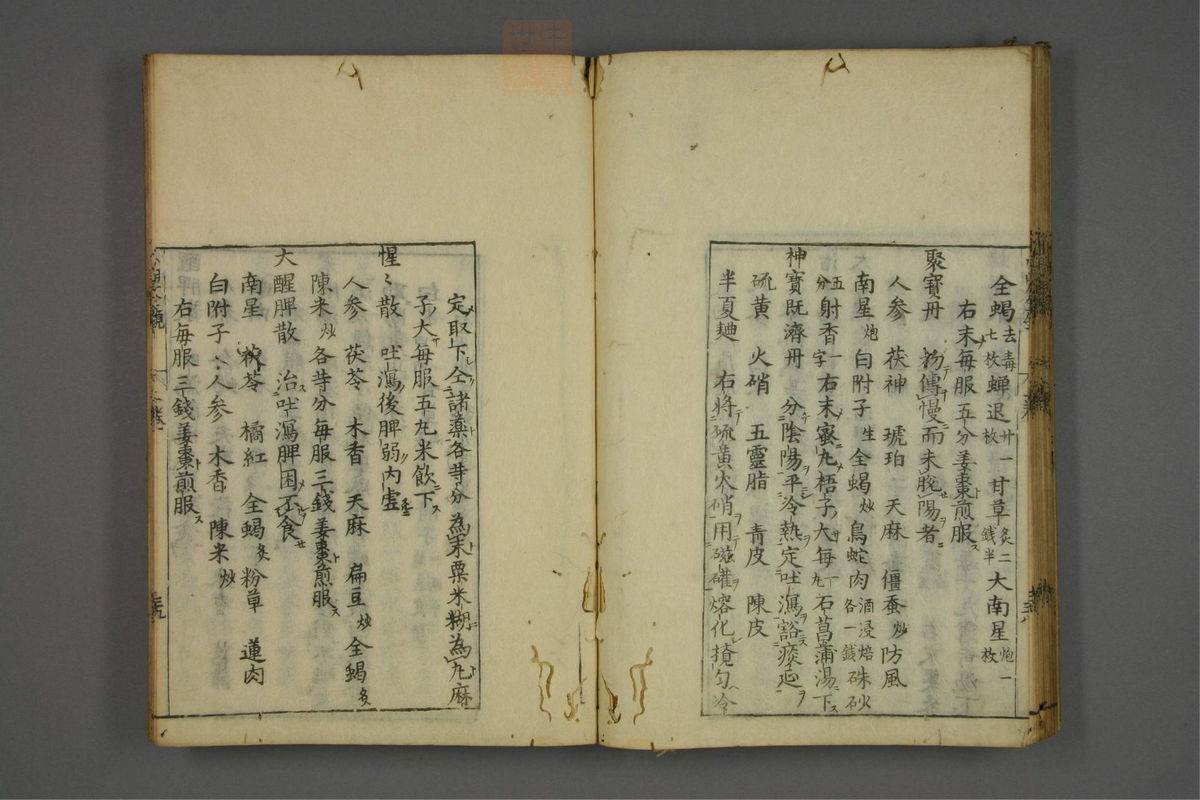 全蝎去毒七枚蝉退廿一枚甘草炙二錢半大南星炮一枚
右末每服五分姜棗煎服ス
聚寳丹 初傳慢而未脫陽者
人参 茯神 琥珀 天麻 僵蚕炒防風
南星炮白附子生全蝎炒烏蛇肉酒浸焙各一錢硃砂
五分射香一字右末蜜丸梧子大每一丸石菖蒲湯下ス
神寳既濟丹 分陰陽平冷熱定吐瀉豁痰逆
硫黄 火硝 五靈脂 青皮 陳皮
半夏麯 右將硫黄火硝用磁礶熔化攪匀冷
定取下仝諸藥各䒭分為末粟米糊為丸麻
子大每服五丸米飲下ス
惺〻散 吐瀉後脾弱內虛
人参 茯苓 木香 天麻 扁豆炒全蝎炙
陳米炒各䒭分每服三錢姜棗煎服ス
大醒脾散 治吐瀉脾困不食
南星 茯苓 橘紅 全蝎炙粉草 蓮肉
白附子 人参 木香 陳米炒
右每服三錢姜棗煎服ス